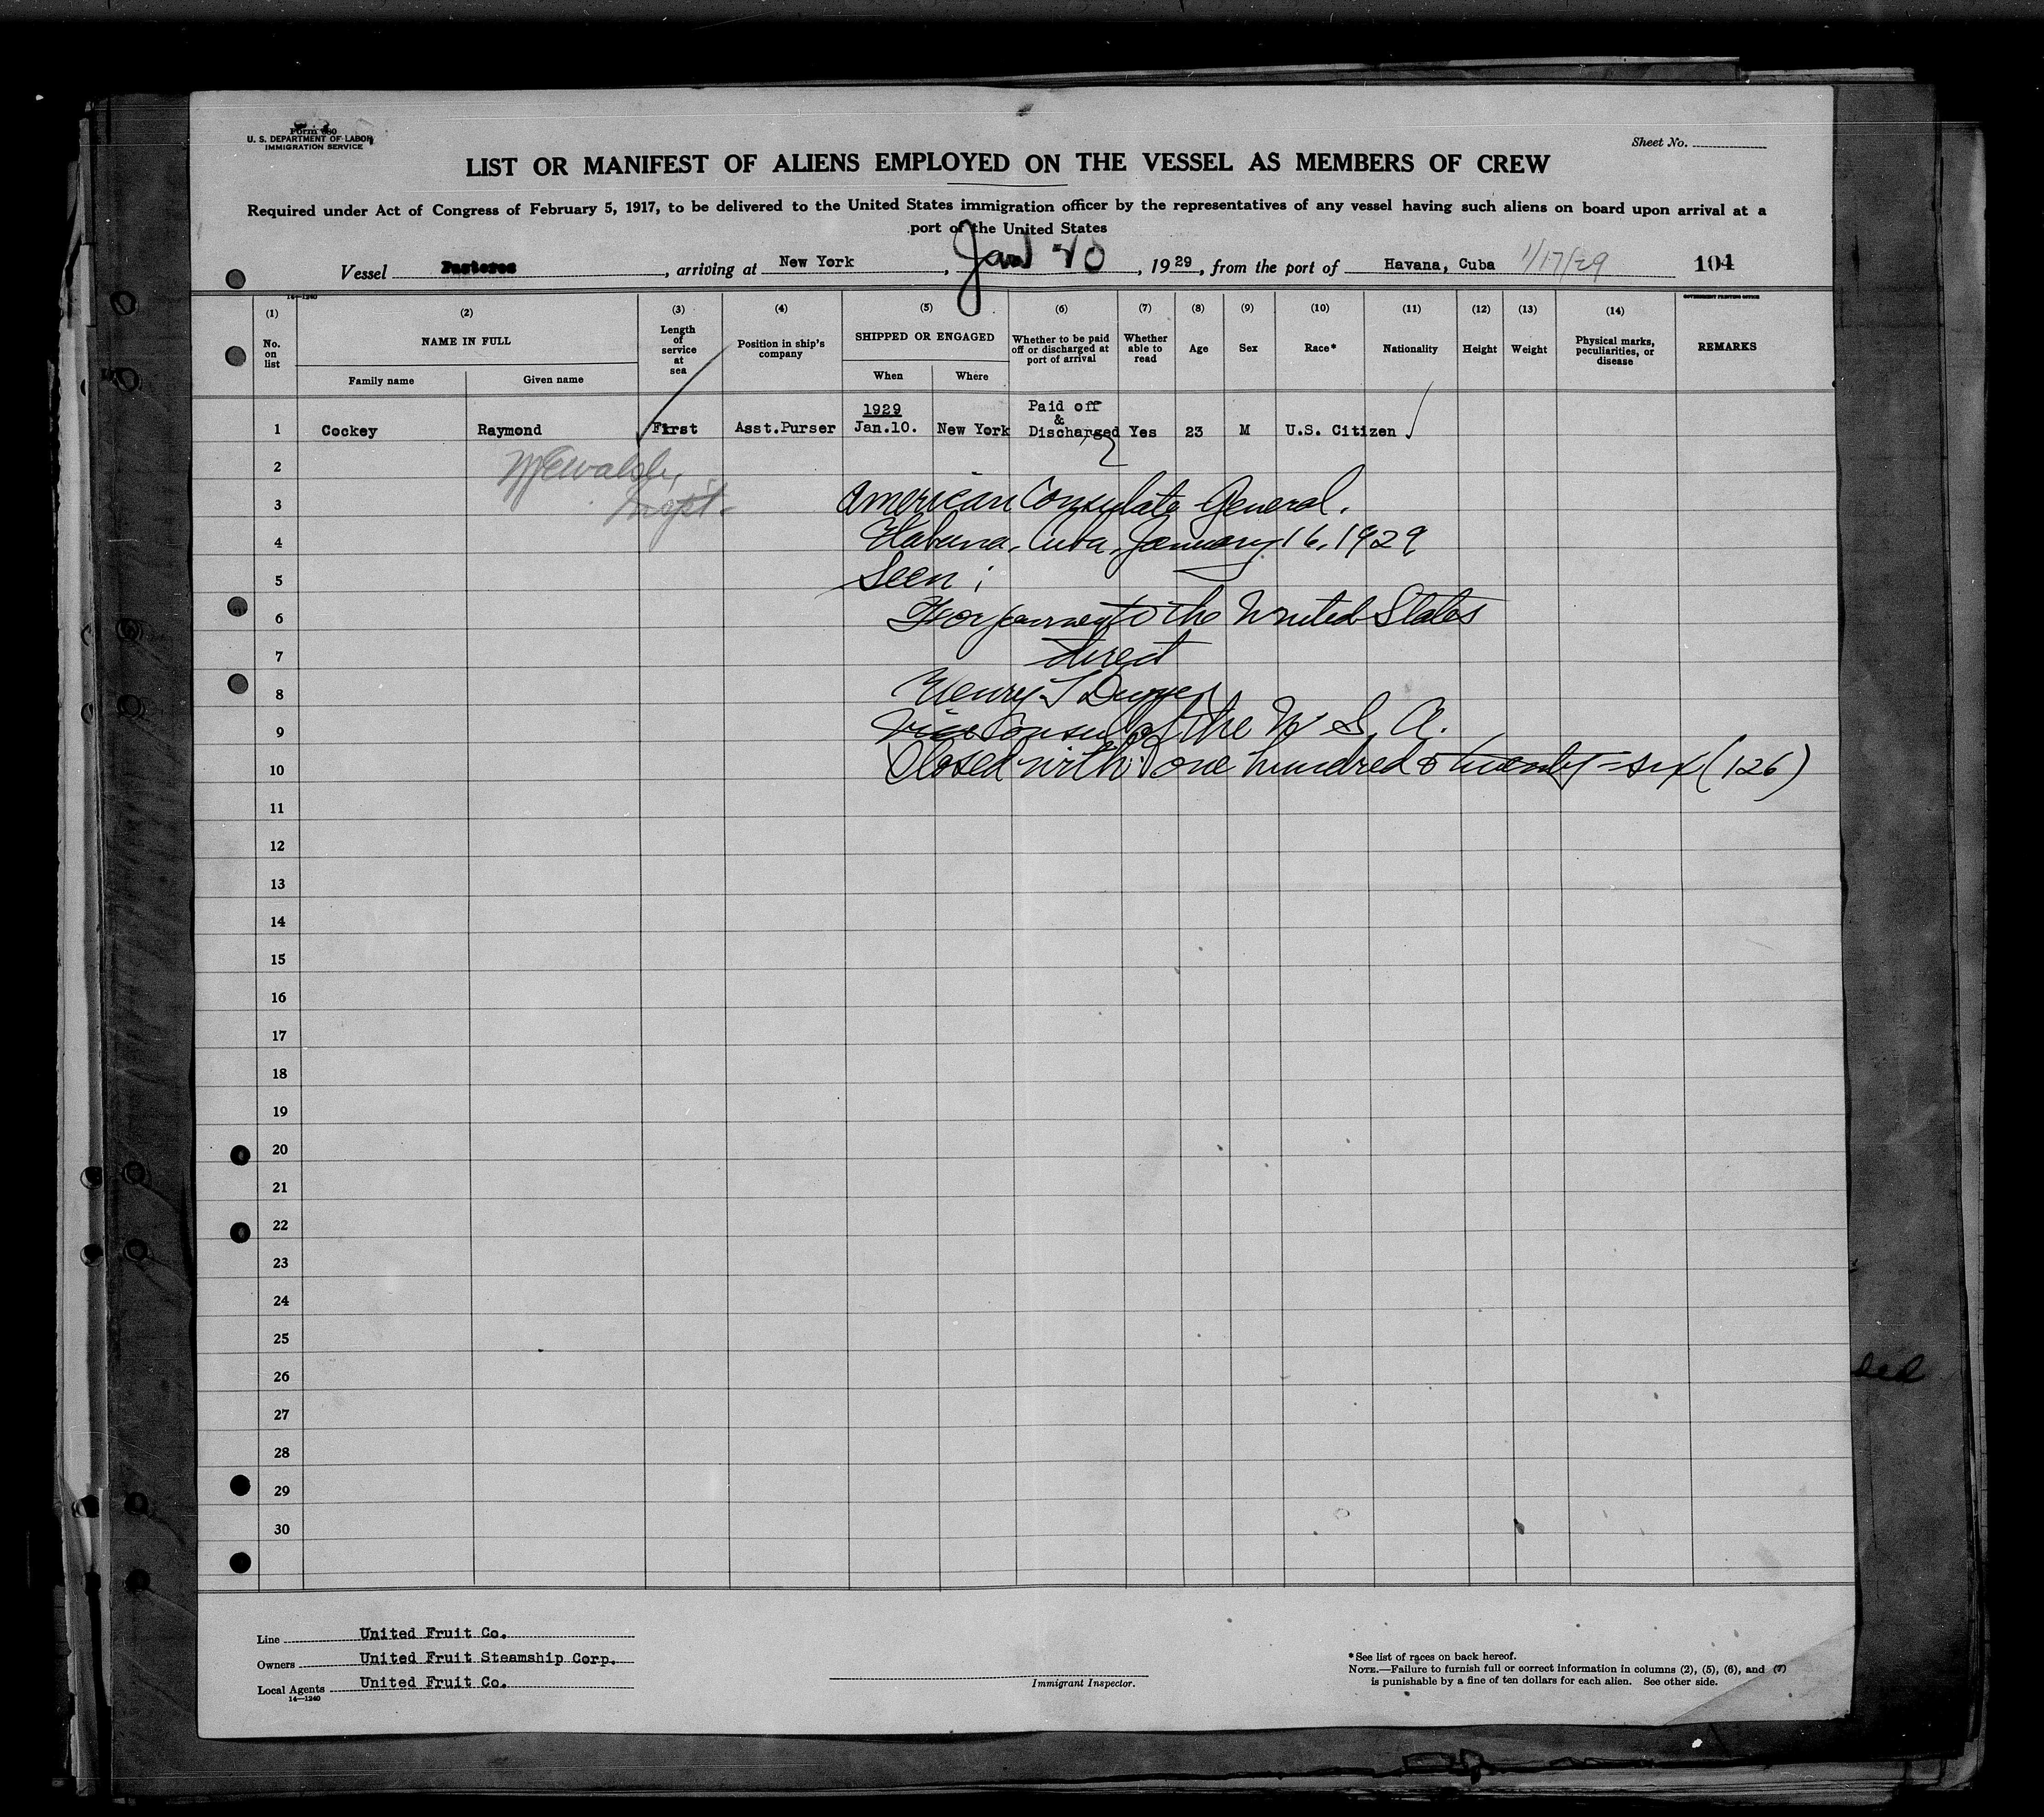 Form 680
U. S. DEPARTMENT OF LABOR
IMMIGRATION SERVICE
Sheet No.
LIST OR MANIFEST OF ALIENS EMPLOYED ON THE VESSEL AS MEMBERS OF CREW
Required under Act of Congress of February 5, 1917, to be delivered to the United States immigration officer by the representatives of any vessel having such aliens on board upon arrival at a
port of the United States
Vessel Pastores, arriving at New York, Jan 20, 1929, from the port of Havana, Cuba 1/17/29 104
14—1240
GOVERNMENT PRINTING OFFICE
(1) (2) (3) (4) (5) (6) (7) (8) (9) (10) (11) (12) (13) (14)
No. on list NAME IN FULL Length of service at sea Position in ship's company SHIPPED OR ENGAGED Whether to be paid off or discharged at port of arrival Whether able to read Age Sex Race* Nationality Height Weight Physical marks, peculiarities, or disease REMARKS
Family name Given name When Where
1 Cockey Raymond First Asst.Purser 1929 Jan.10. New York Paid off & Discharged Yes 23 M U.S. Citizen
2
Inspt.
3 American Consulate General.
4 Habana, Cuba, January 16, 1929
5 Seen;
6 For journey to the United States
7 direct
8 Henry T
9 Vice Consul of the U S. A.
10 Closed with one hundred & twenty-six (126)
11
12
13
14
15
16
17
18
19
20
21
22
23
24
25
26
27
28
29
30
Line United Fruit Co.
Owners United Fruit Steamship Corp.
Local Agents United Fruit Co.
14—1240
Immigrant Inspector.
*See list of races on back hereof.
NOTE.—Failure to furnish full or correct information in columns (2), (5), (6), and (7)
is punishable by a fine of ten dollars for each alien. See other side.